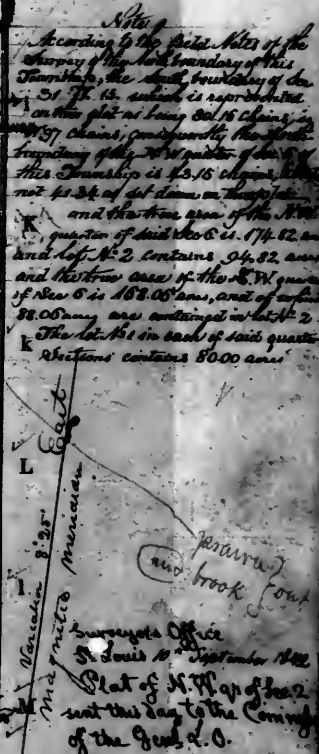 Notes
According to the field Notes of the
Survey of the North boundary of this
Township, the South boundary of Sec
31 T. 13. which is represented
on this plat as being 80.15 chains, is
chains, consequently the North
boundary of the N.W quarter of Sec 6 of
this Township is 43.15 chains,
not 41.34 as set down on the plat
and the true area of the N.W
quarter of said Sec 6 is 174.82 acres
and lot No 2 contains 94.82 acres
and the true area of the S.W quarter
of Sec 6 is 168.05 acres, and of which
88.05 acres are contained in lot No 2
The lot No 1 in each of said quarter
Sections contains 80.00 acres
K
k
L
l
M
Variation 8°25' East
Magnetic meridian
prairie
brook
Surveyors Office
St Louis 10th September 1842
Plat of N.W qr of Sec 2
sent this day to the Commr
of the Genl L.O.